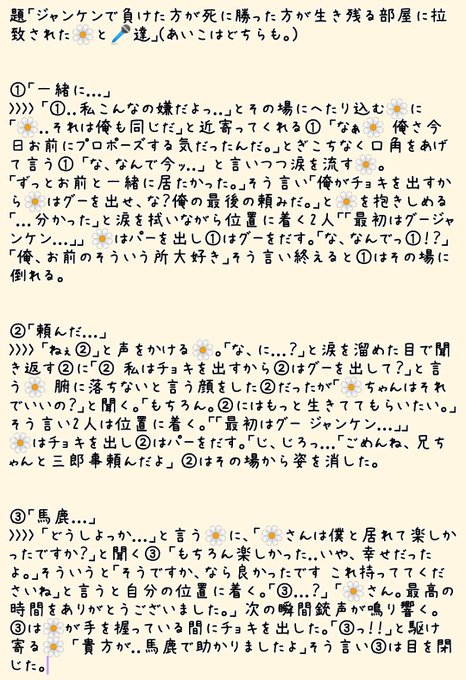 題「ジャンケンで負けた方が死に勝った方が生き残る部屋に拉
致された🌼と🎤達」(あいこはどちらも。)
①「一緒に...」
》》》「①..私こんなの嫌だよっ..」とその場にへたり込む🌼に
「🌼..それは俺も同じだ」と近寄ってくれる①「なぁ🌼 俺さ今
日お前にプロポーズする気だったんだ。」とぎこちなく口角をあげ
て言う①「な、なんで今ッ..」と言いつつ涙を流す🌼。
「ずっとお前と一緒に居たかった。」そう言い「俺がチョキを出すから
🌼はグーを出せ、な?俺の最後の頼みだ。」と🌼を抱きしめる
「...分かった」と涙を拭いながら位置に着く2人「「最初はグージャ
ンケン...」」 🌼はパーを出し①はグーをだす。「な、なんでっ①!?」
「俺、お前のそういう所大好き」そう言い終えると①はその場に
倒れる。
②「頼んだ...」
》》》「ねぇ②」と声をかける🌼。「な、に...?」と涙を溜めた目で聞
き返す②に「② 私はチョキを出すから②はグーを出して?」と言
う🌼 腑に落ちないと言う顔をした②だったが「🌼ちゃんはそれ
でいいの?」と聞く。「もちろん。②にはもっと生きててもらいたい。」
そう言い2人は位置に着く。「「最初はグー ジャンケン...」」
🌼はチョキを出し②はパーをだす。「じ、じろっ...「ごめんね、兄ち
ゃんと三郎事頼んだよ」 ②はその場から姿を消した。
③「馬鹿...」
》》》「どうしよっか...」と言う🌼に、「🌼さんは僕と居れて楽しか
ったですか?」と聞く③「もちろん楽しかった..いや、幸せだった
よ。」そういうと「そうですか、なら良かったです これ持っててくだ
さいね」と言うと自分の位置に着く。「③...?」「🌼さん。最高の
時間をありがとうございました。」 次の瞬間銃声が鳴り響く。
③は🌼が手を握っている間にチョキを出した。「③っ!!」と駆け
寄る🌼 「貴方が..馬鹿で助かりましたよ」そう言い③は目を閉
じた。